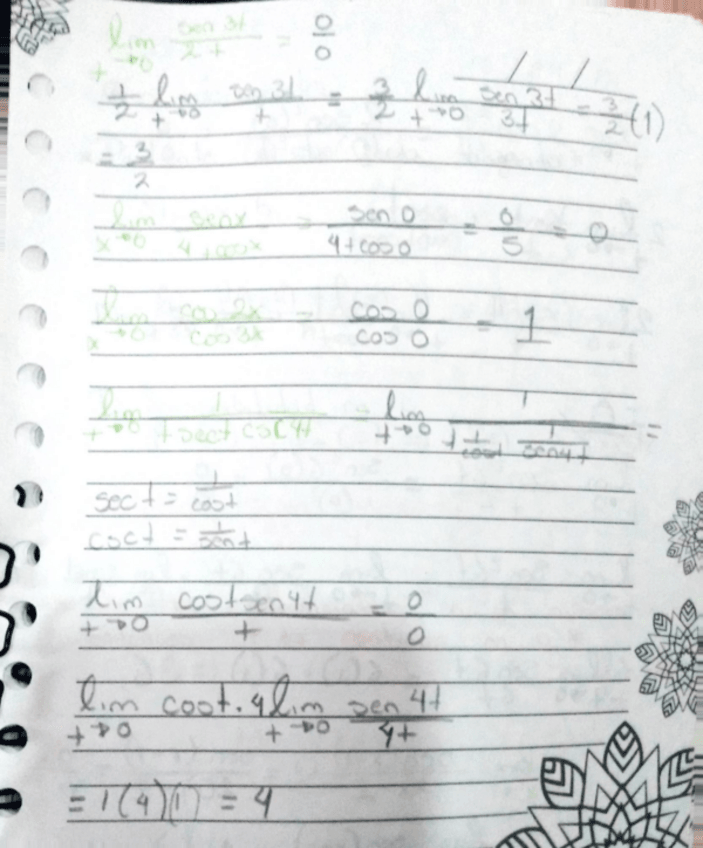 lim t→0 sen 3t / 2t = 0/0
1/2 lim t→0 sen 3t / t = 3/2 lim t→0 sen 3t / 3t = 3/2 (1)
= 3/2
lim x→0 sen x / 4+cos x = sen 0 / 4+cos 0 = 0/5 = 0
lim x→0 cos 2x / cos 3x = cos 0 / cos 0 = 1
lim t→0 1 / t sec t csc 4t = lim t→0 1 / t 1/cos t 1/sen 4t =
sec t = 1/cos t
csc t = 1/sen t
lim t→0 cos t sen 4t / t = 0/0
lim t→0 cos t · 4 lim t→0 sen 4t / 4t
= 1(4)(1) = 4